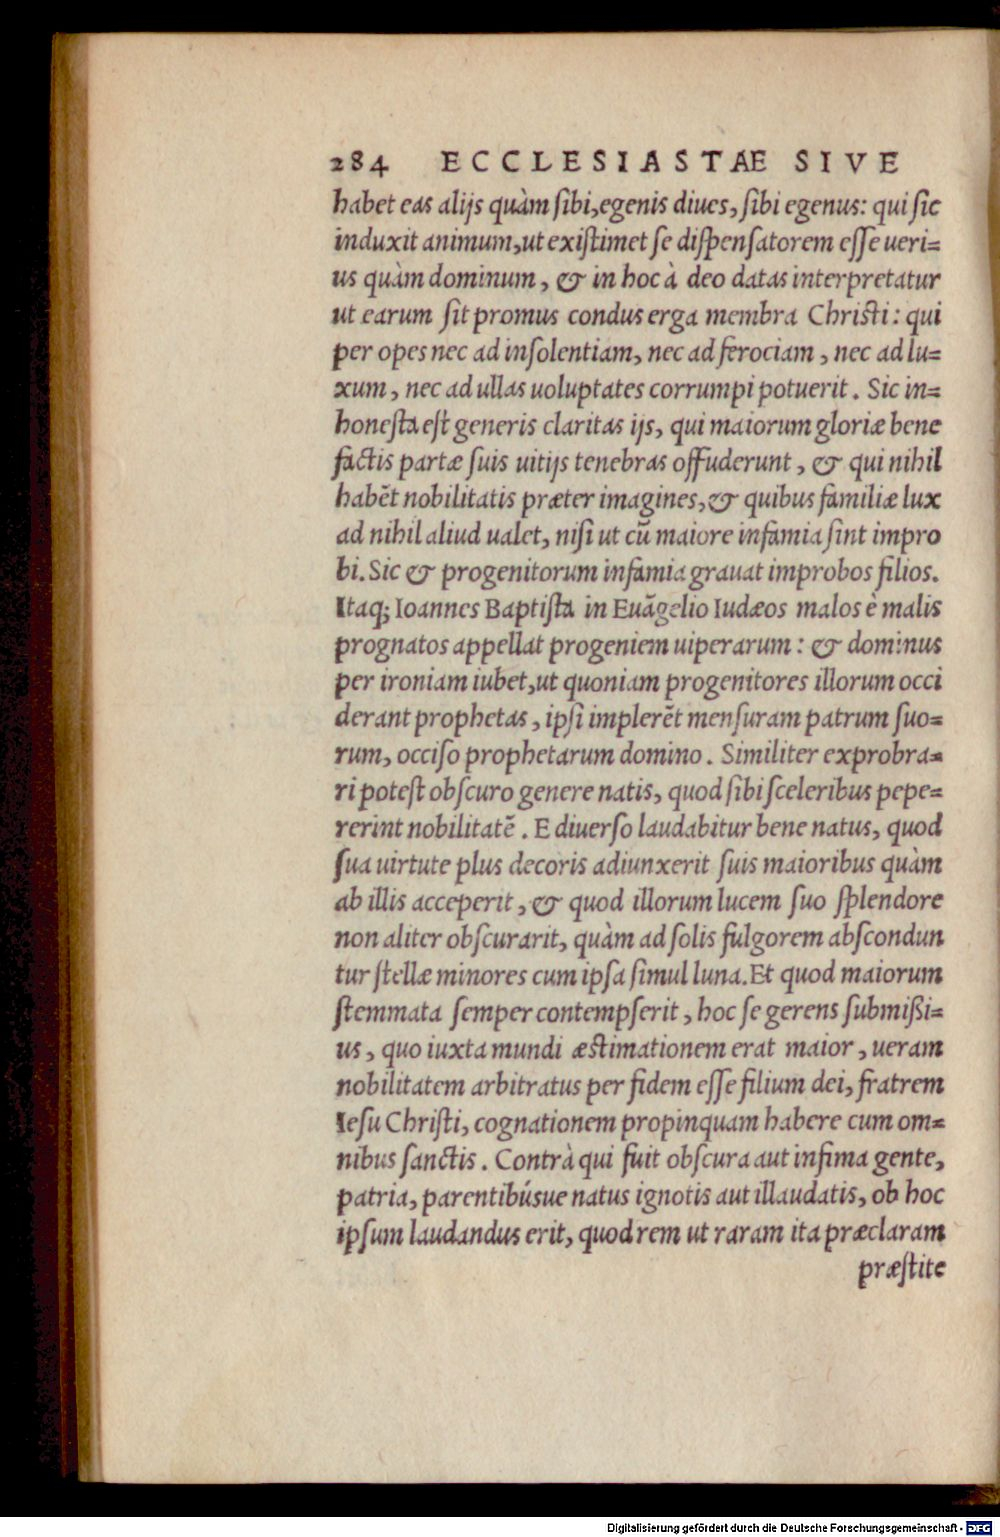 284 ECCLESIASTAE SIVE
habet eas alijs quàm sibi, egenis diues, sibi egenus: qui sic
induxit animum, ut existimet se dispensatorem esse ueri=
us quàm dominum, & in hoc à deo datas interpretatur
ut earum sit promus condus erga membra Christi: qui
per opes nec ad insolentiam, nec ad ferociam, nec ad lu=
xum, nec ad ullas uoluptates corrumpi potuerit. Sic in=
honesta est generis claritas ijs, qui maiorum gloriæ bene
factis partæ suis uitijs tenebras offuderunt, & qui nihil
habēt nobilitatis præter imagines, & quibus familiæ lux
ad nihil aliud ualet, nisi ut cū maiore infamia sint impro
bi. Sic & progenitorum infamia grauat improbos filios.
Itaq; Ioannes Baptista in Euāgelio Iudæos malos è malis
prognatos appellat progeniem uiperarum: & dominus
per ironiam iubet, ut quoniam progenitores illorum occi
derant prophetas, ipsi implerēt mensuram patrum suo=
rum, occiso prophetarum domino. Similiter exprobra=
ri potest obscuro genere natis, quod sibi sceleribus pepe=
rerint nobilitatē. E diuerso laudabitur bene natus, quod
sua uirtute plus decoris adiunxerit suis maioribus quàm
ab illis acceperit, & quod illorum lucem suo splendore
non aliter obscurarit, quàm ad solis fulgorem abscondun
tur stellæ minores cum ipsa simul luna. Et quod maiorum
stemmata semper contempserit, hoc se gerens submißi=
us, quo iuxta mundi æstimationem erat maior, ueram
nobilitatem arbitratus per fidem esse filium dei, fratrem
Iesu Christi, cognationem propinquam habere cum om=
nibus sanctis. Contrà qui fuit obscura aut infima gente,
patria, parentibúsue natus ignotis aut illaudatis, ob hoc
ipsum laudandus erit, quod rem ut raram ita præclaram
præstite
Digitalisierung gefördert durch die Deutsche Forschungsgemeinschaft - DFG